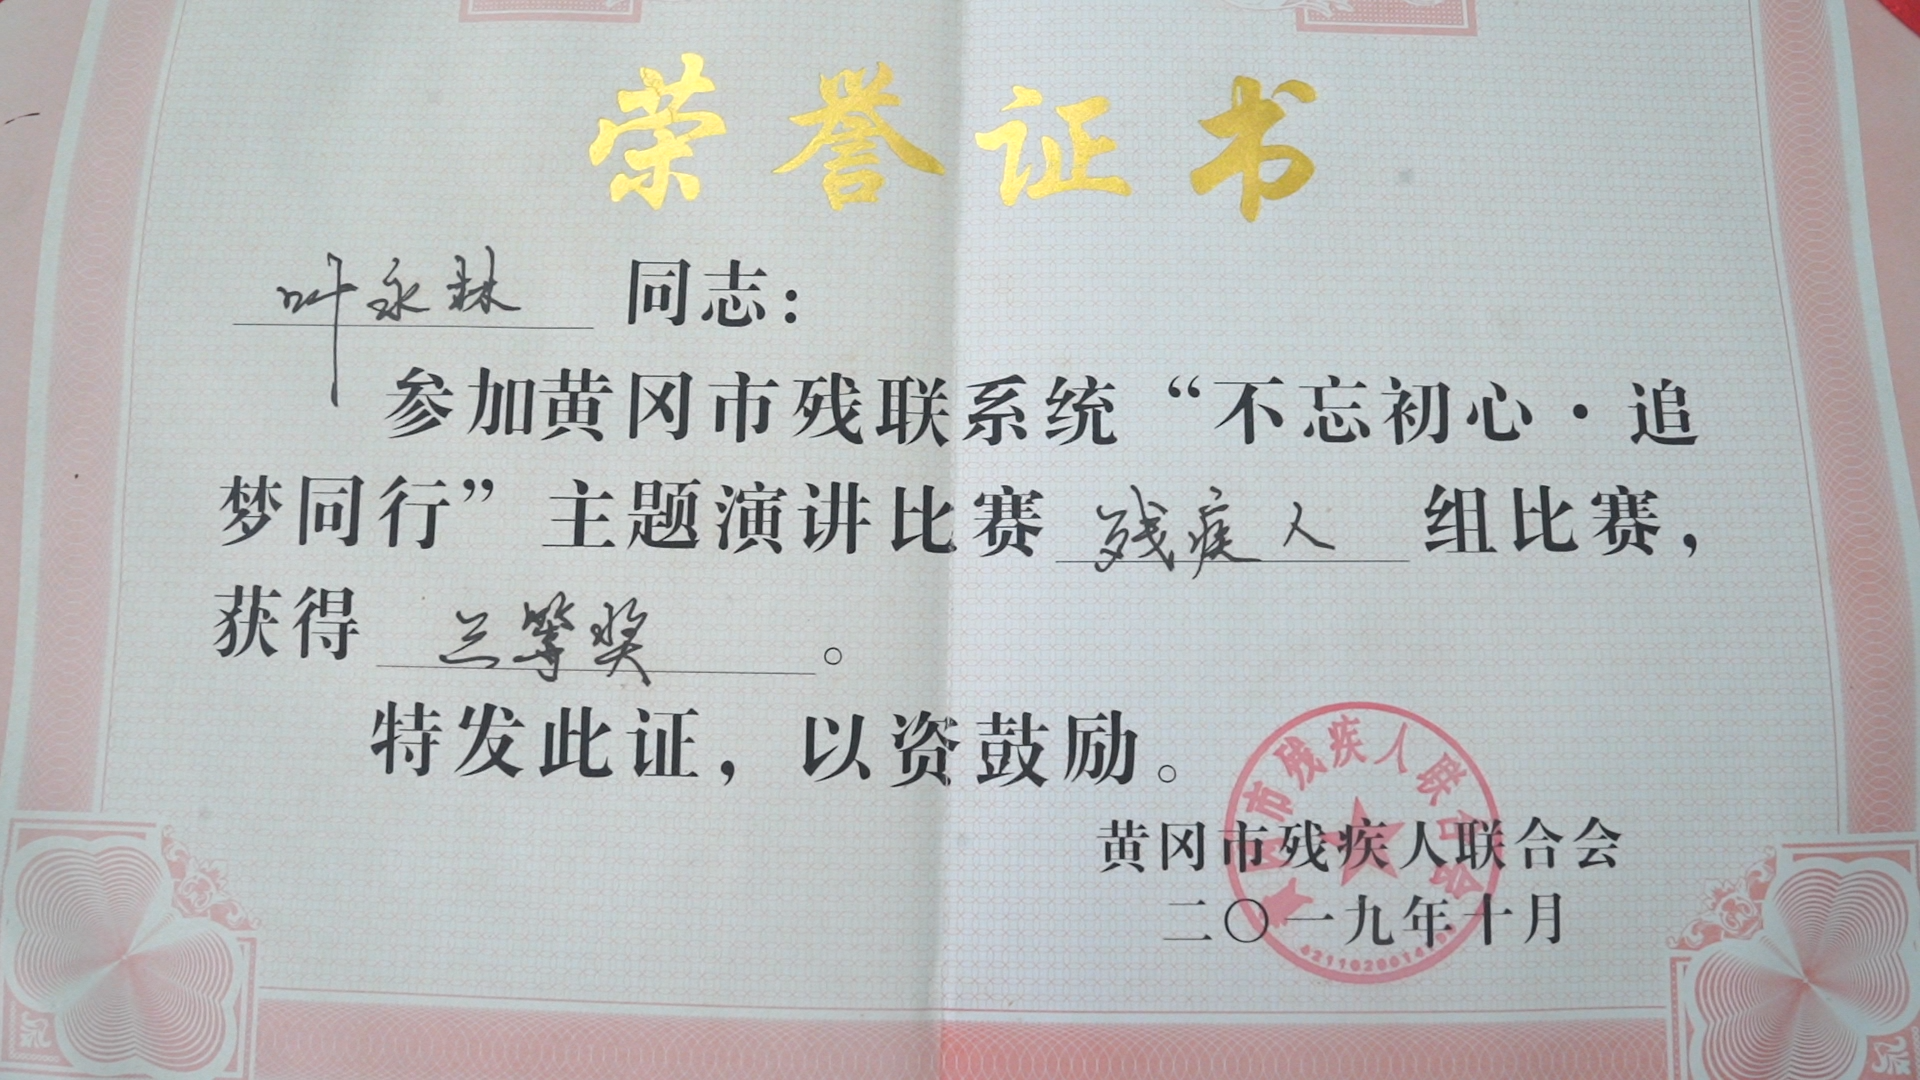 荣誉证书
叶永林 同志：
参加黄冈市残联系统“不忘初心·追
梦同行”主题演讲比赛 残疾人 组比赛，
获得 三等奖 。
特发此证，以资鼓励。
黄冈市残疾人联合会
二〇一九年十月
黄冈市残疾人联合会